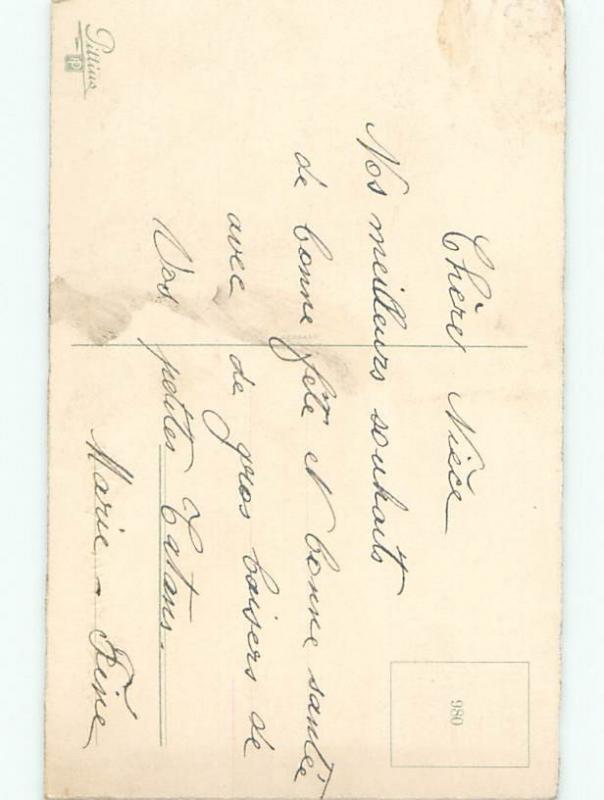 Chère Nièce
Nos meilleurs souhaits
de bonne fête et bonne santé
avec de gros baisers de
Vos petites Tatans.
Marie - Fine
980